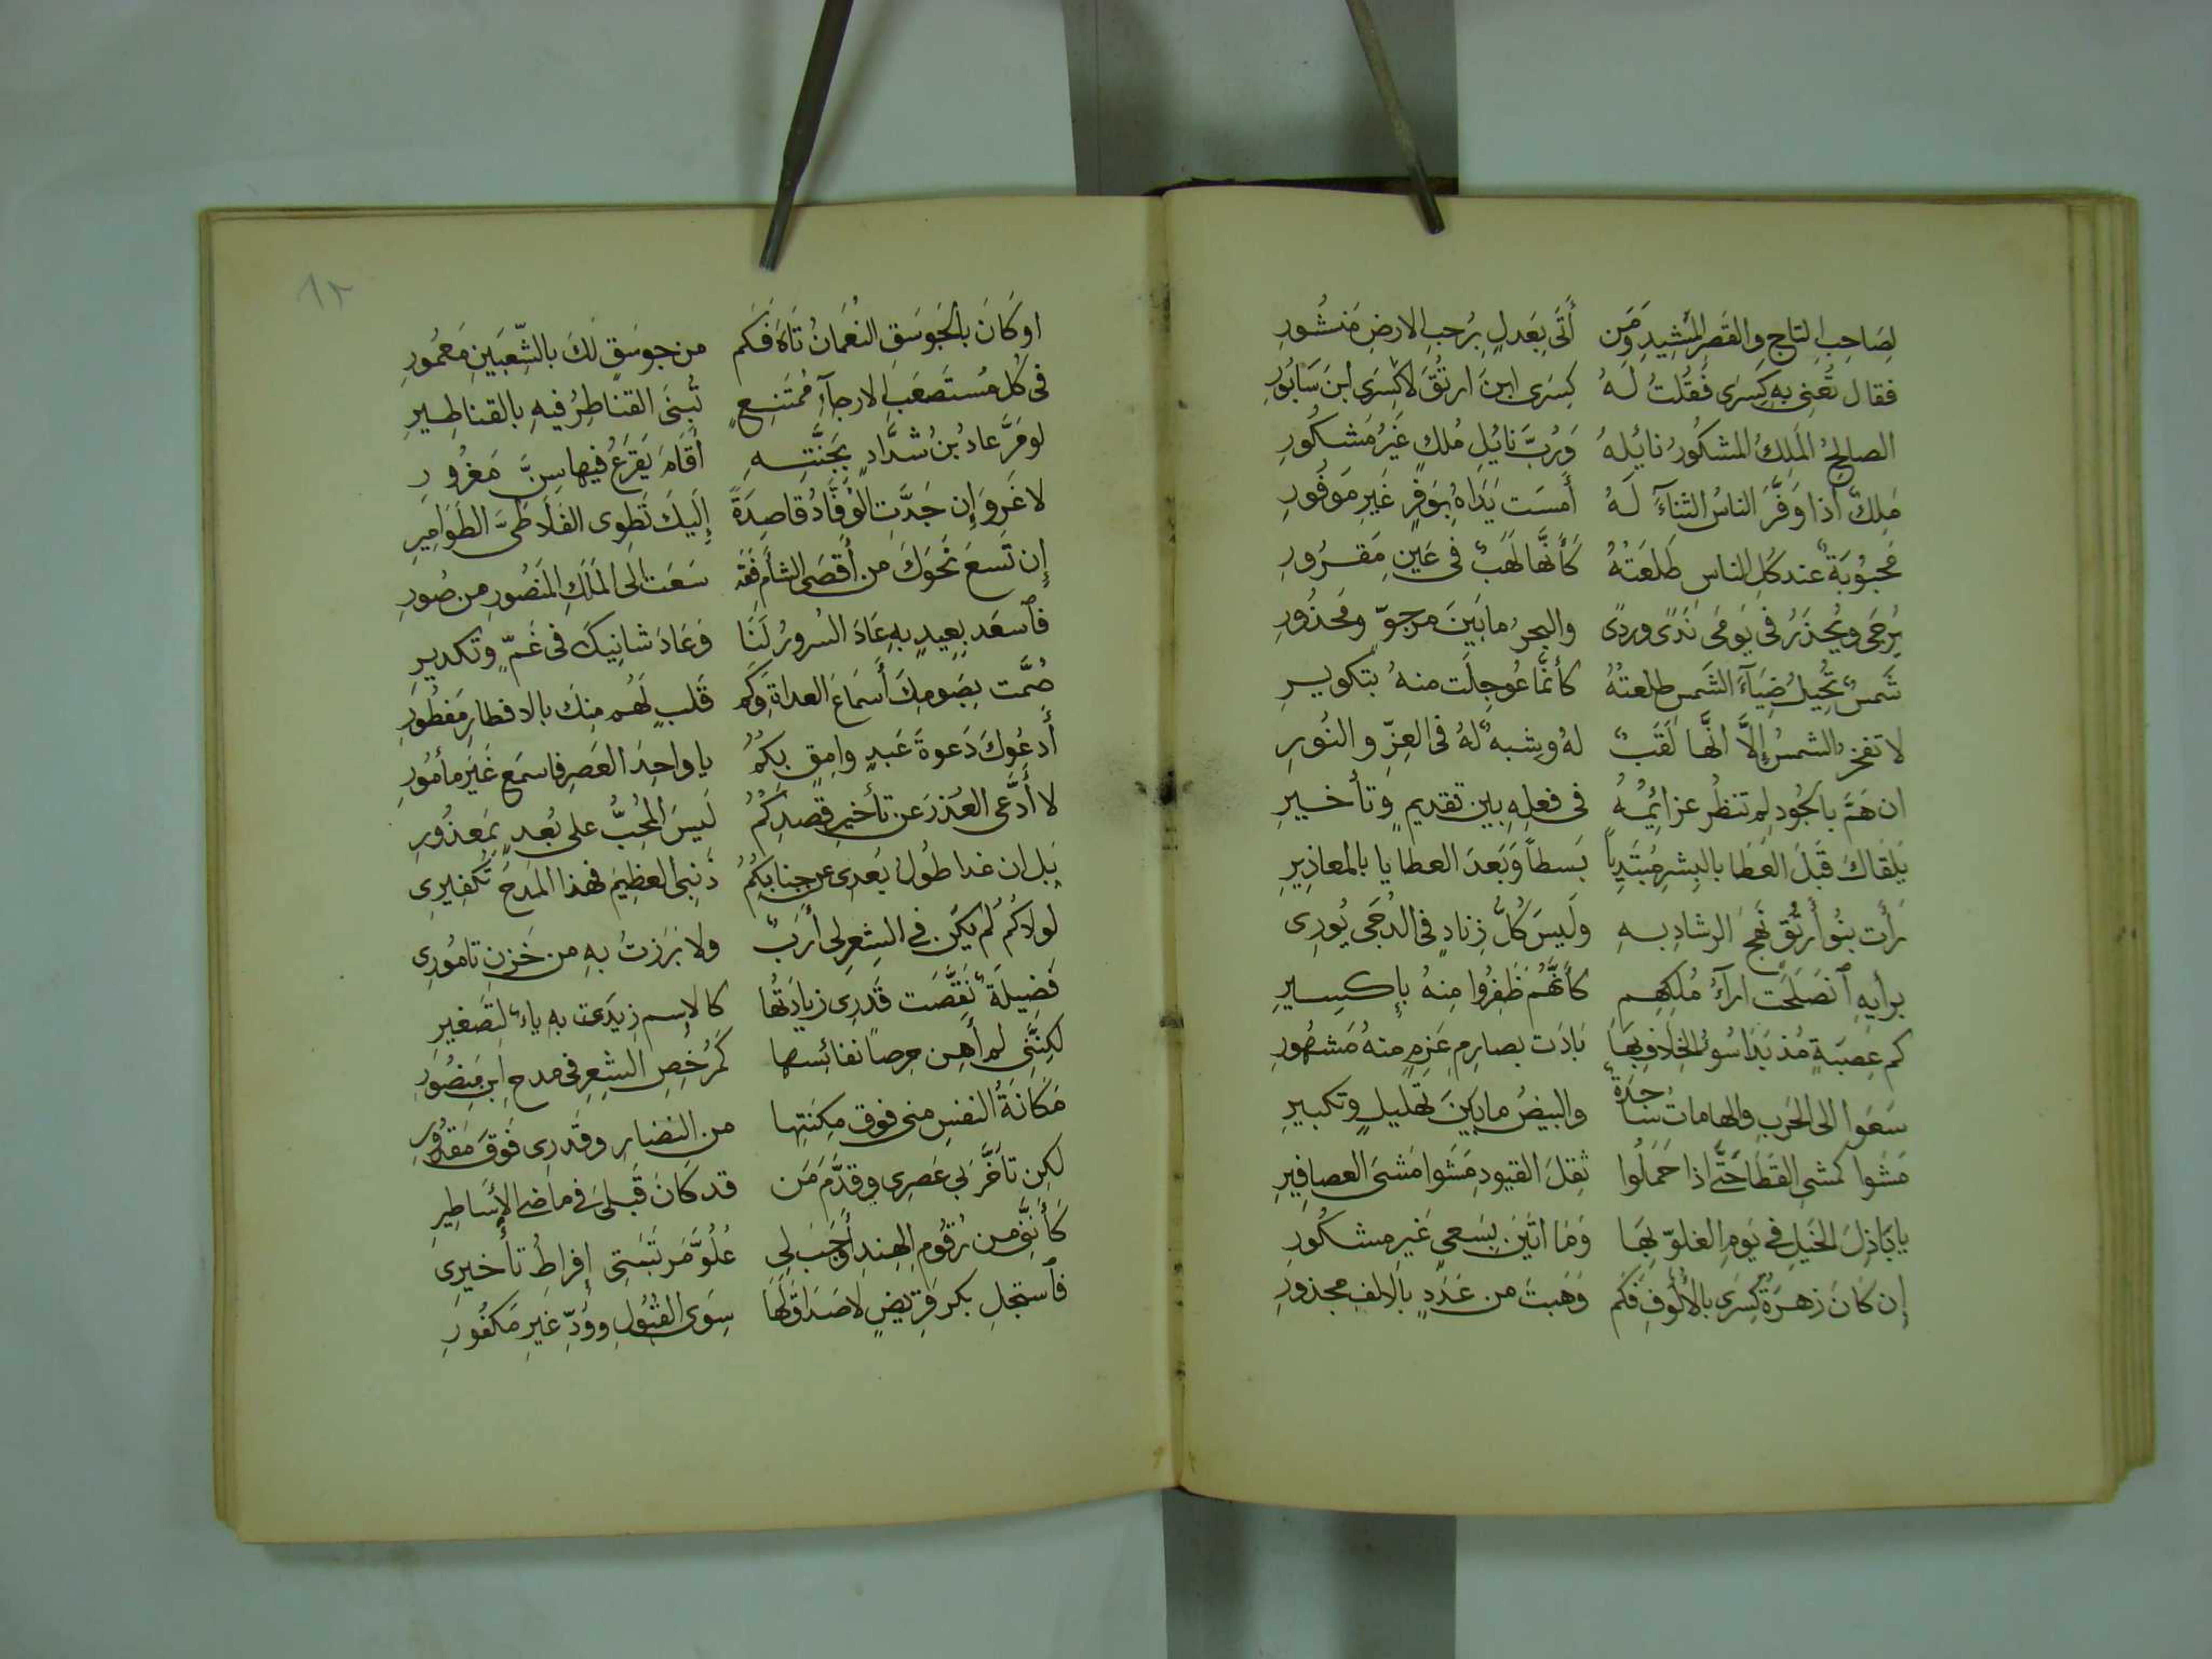 لِصَاحِبِ التاجِ والقَصرِ المَشِيدِ وَمَن أَتَى بِعَدلٍ بِرُحبِ الارضِ مَنشُورِ
فقال تَعنِى به كِسَرى فَقُلتُ لَهُ كِسرَى ابنَ ارتُقَ لا كِسرَى ابنَ سَابُورِ
الصالِحُ المَلِكُ المشكُورُ نائِلُهُ وَرُبَّ نايُلِ مُلكٍ غَيرُ مَشكُورِ
مَلِكٌ اذا وَفَّرَ الناسُ الثناءَ لَهُ أَمسَت يَدَاهُ بِوَفرٍ غَيرِ مَوفُورِ
مَحبُوبَةٌ عند كُلِ الناسِ طَلعَتُهُ كَأَنَّها لَهَبٌ فى عَينِ مَقرُورِ
يُرجَى ويُحذَرُ فى يَومَى نَدًى وردًى والبحرُ ما بَينَ مرجوٍّ ومَحذُورِ
شَمسٌ تُحِيلُ ضِيَآءَ الشَمسِ طلعتُهُ كأنَّما عُوجِلَت منهُ بتكويرِ
لا تفخرُ الشمسُ إلَّا انَّها لَقَبٌ لهُ وشبهٌ لهُ فى العِزِّ والنُورِ
ان هَمَّ بالجُودِ لم تنظُر عزائِمُهُ فى فعلِهِ بين تقديمٍ وتأخيرِ
يَلقَاكَ قَبلَ العَطَا بالبِشرِ مُبتَدِياً بَسطاً وَبَعدَ العطايا بالمعاذِيرِ
رَأَت بنُو أُرتُقٍ نَهجَ الرشادِ بهِ وَلَيسَ كُلُّ زِنادٍ فى الدُجَى يُورِى
برايهِ ٱنصَلَحَت ارآءُ مُلكِهِم كأنَّهُم ظَفِرُوا مِنهُ بإكسِيرِ
كم عِصبَةٍ مُذ بَدَا سُوءُ الخِلَافِ بِهَا بَادَت بصارِمِ عَزمٍ منهُ مَشهُورِ
سَعَوا الى الحَربِ والهاماتُ ساجدَةٌ والبيضُ ما بَينَ تهليلٍ وتكبيرِ
مَشَوا كمشىِ القَطَا حَتَّى اذا حَمَلُوا ثِقلَ القيودِ مَشَوا مَشىَ العصافِيرِ
يا بَاذِلَ الخَيلِ فى يَومِ الغلوّ بِهَا وَمَا اتَينَ بِسَعىٍ غَيرِ مشكُورِ
إن كَانَ زهرَةُ كِسرَى بالأُلُوفِ فَكم وَهَبتَ من عَدَدٍ بالالفِ مجذورِ
١٢
او كَانَ بالجَوسَقِ النعَمَانُ تَاهَ فَكَم من جوسَقٍ لَكَ بالشِّعبَينِ مَعمُورِ
فى كُل مُستَصعَبِ الارجاءِ مُمتَنِعٍ تُبنَى القناطِرُ فيهِ بالقناطِيرِ
لو مَرَّ عادُ بنُ شدَّادٍ بجَنَّتِهِ أَقَامَ يَقرَعُ فيها سِنَّ مَغرُورِ
لا غَروَ إن جَدَّتِ الوُفَّادُ قاصِدَةً إلَيكَ تَطوِى الفَلَا طَىَّ الطَوَامِيرِ
إن تَسعَ نَحوَكَ من أَقصَى الشأَم فَقَد سَعَت الى المَلِكِ المَنصُورِ من صُورِ
فٱسعَد بعِيدٍ بهِ عَادَ السُرورُ لَنَا وَعَادَ شانِيكَ فى غَمٍّ وتكديرِ
صُمَّت بصَومِكَ أَسمَاعُ العداةِ وَكَم قَلبٍ لَهُم مِنكَ بالافطارِ مَفطُورِ
أَدعُوكَ دَعوةَ عَبدٍ وامِقٍ بِكُمُ يا واحِدَ العَصرِ فاسمَع غَيرَ مأمُورِ
لا أَدَّعى العُذرَ عَن تأخيرِ قصدِكُمُ لَيسَ المُحِبُّ على بُعدٍ بمَعذُورِ
بَل ان غدا طُولُ بُعدى عن جنابِكُمُ ذَنبِى العظِيمَ فهذا المَدحُ تَكفِيرِى
لولاكُمُ لم يَكُن فى الشِعرِ لى أَرَبٌ ولا بَرَزتُ بهِ من خَزنِ تامُورِى
فَضِيلَةٌ نَقَّصَت قَدرِى زيادَتُها كالاسمِ زِيدَت به ياءٌ لتصغيرِ
لكِنَّنِى لم أُهِن حِرصاً نفائِسها كَمُرخِصِ الشِعرِ فى مدحِ ابنِ مَنصُورِ
مَكَانَةُ النفسِ منى فوق مِكنَتِها من النضارِ وقَدرِى فَوقَ مَقدُورِى
لكِن تأَخَّرَ بى عَصرِى وقدَّمَ مَن قد كَانَ قَبلى فى ماضى الأَسَاطِيرِ
كَأَنَّنِى من رُقُومِ الهِندِ أَوجَبَ لى عُلُوَّ مَرتَبَتِى إفراطُ تأخيرِى
فٱستَجلِ بكرَ قريضٍ لا صَدَاقَ لَهَا سِوَى القَبُولِ ووُدٍّ غيرِ مَكفُورِ